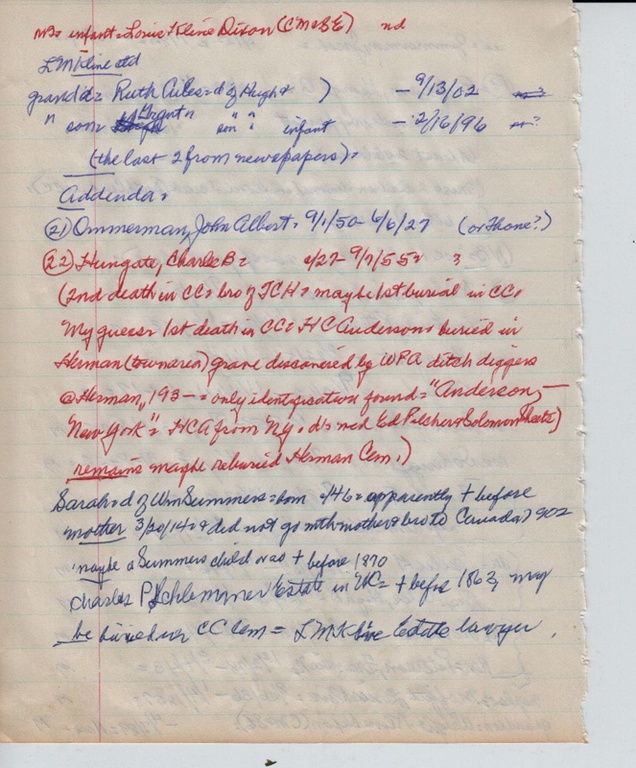 infant = Louis Kline Dixon (CM&SE) nd
LMKline etd
grandd = Ruth Ailes = d of Hugh & ) - 9/13/02
" son Grant " son " : infant - 2/16/96
(the last 2 from newspapers) =
Addenda =
(21) Ommerman, John Albert = 9/1/50 - 6/6/27 (or Thone?)
(22) Hungate, Charle B = /27 - 9/9/55 = ?
(2nd death in CC = bro of JCH = maybe 1st burial in CC =
My guess = 1st death in CC = HC Anderson = buried in
Herman (town area) grave discovered by WPA ditch diggers
@ Herman, 193- = only identification found = "Anderson,
New York" = HCA from Ny = d's med Ed Pilcher & Solomon Sheets)
remains maybe reburied Herman Cem.)
Sarah = d of Wm Summers = born /46 = apparently + before
mother 3/20/14 = & did not go with mother & bro to Canada) 902
maybe a Summers child was + before 1870
Charles P Schlemmer Estate in = + before 1863, may
be buried CC Cem = LMKline Estate lawyer.